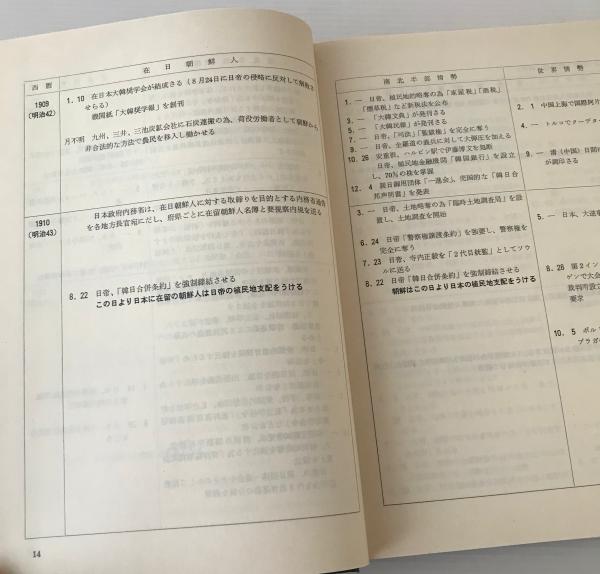 在日朝鮮人
西暦
1909
(明治42)
1.10 在日本大韓奨学会が結成さる（8月24日に日帝の侵略に反対して解散させらる）
機関紙「大韓奨学報」を創刊
月不明 九州、三井、三池炭鉱会社に石炭運搬の為、荷役労働者として朝鮮から
非合法的な方法で農民を移入し働かせる
1910
(明治43)
日本政府内務省は、在日朝鮮人に対する取締りを目的とする内務省通告
を各地方長官宛にだし、府県ごとに在留朝鮮人名簿と要視察内規を送る
8.22 日帝、「韓日合併条約」を強制締結させる
この日より日本に在留の朝鮮人は日帝の植民地支配をうける
14
南北半部情勢
世界情勢
1.― 日帝、植民地的略奪の為「家屋税」「酒税」
「煙草税」など新税法を公布
3.― 「大韓文典」が発刊さる
5.― 「大韓民報」が発刊さる
7.― 日帝、「司法」「監獄権」を完全に奪う
9.― 日帝、全羅道の義兵に対して大弾圧を加える
10.26 安重根、ハルビン駅で伊藤博文を処断
日帝、植民地金融機関「韓国銀行」を設立
し、70％の株を掌握
12.4 親日御用団体「一進会」、売国的な「韓日合
邦声明書」を発表
2.1 中国上海で国際阿片
4.― トルコでクーデター
9.― 清（中国）日間
が調印さる
3.― 日帝、土地略奪の為「臨時土地調査局」を設
置し、土地調査を開始
6.24 日帝「警察権譲渡条約」を強要し、警察権を
完全に奪う
7.23 日帝、寺内正毅を「2代目統監」としてソウ
ルに送る
8.22 日帝「韓日合併条約」を強制締結させる
朝鮮はこの日より日本の植民地支配をうける
5.― 日本、大逆事
8.28 第2イン
ゲンで大会
裁判所設立
要求
10.5 ポル
ブラガ